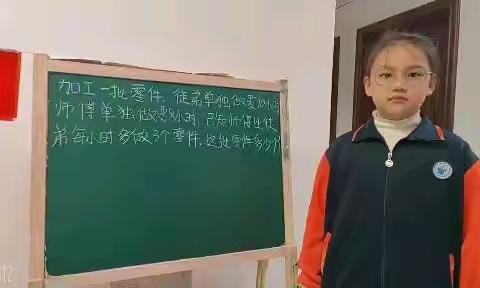 加工一批零件,徒弟单独做要10小时
师傅单独做要8小时,已知师傅比徒
弟每小时多做3个零件,这批零件多少个